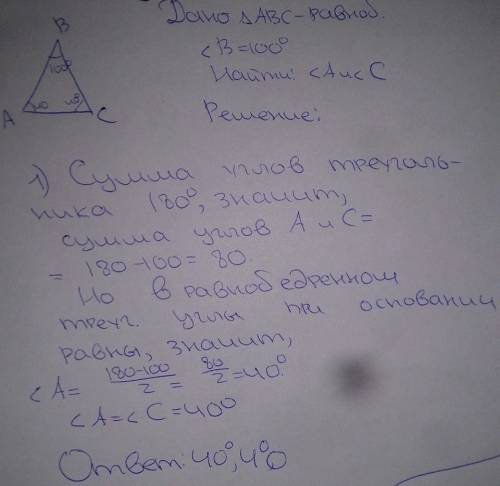 Дано ΔABC-равноб.
B
∠B=100°
100°
Найти: ∠A и ∠C
A 40 40° C
Решение:
1) Сумма углов треуголь-
ника 180°, значит,
сумма углов A и C=
= 180-100= 80.
Но в равнобедренном
треуг. углы при основании
равны, значит,
∠A= 180-100/2 = 80/2 =40°.
∠A=∠C=40°
Ответ: 40°, 4°0